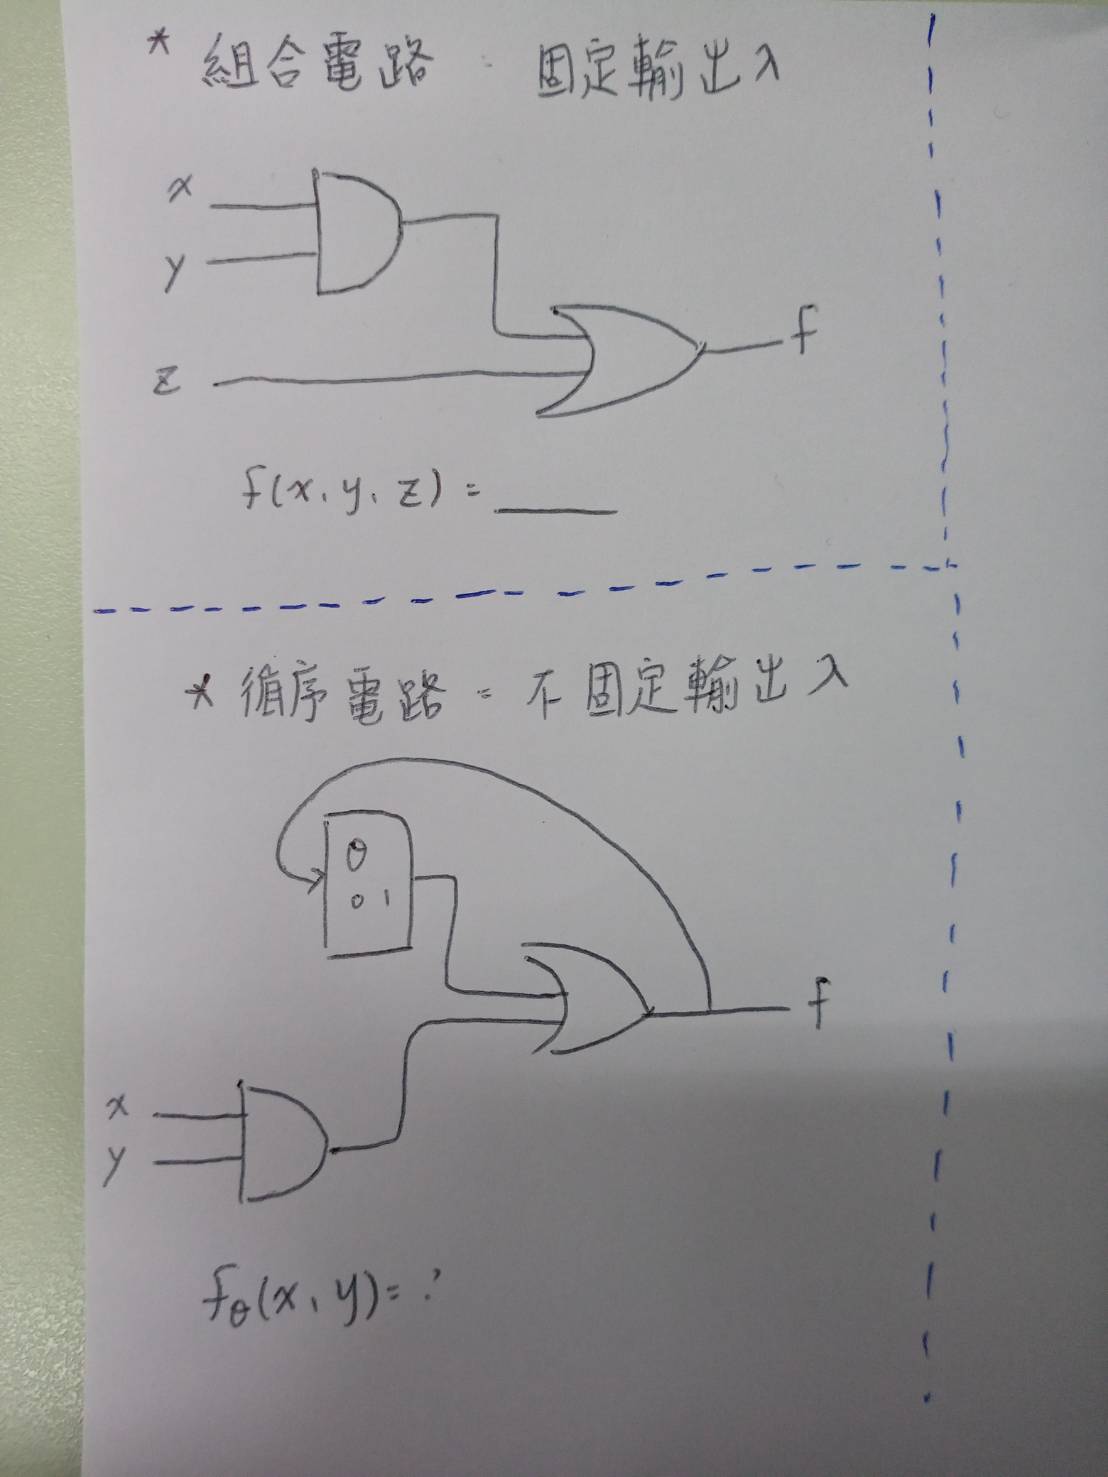 * 組合電路 - 固定輸出入
x
y
z
f
f(x, y, z) = ____
* 循序電路 = 不固定輸出入
θ
0 1
f
x
y
fθ(x, y) = ?